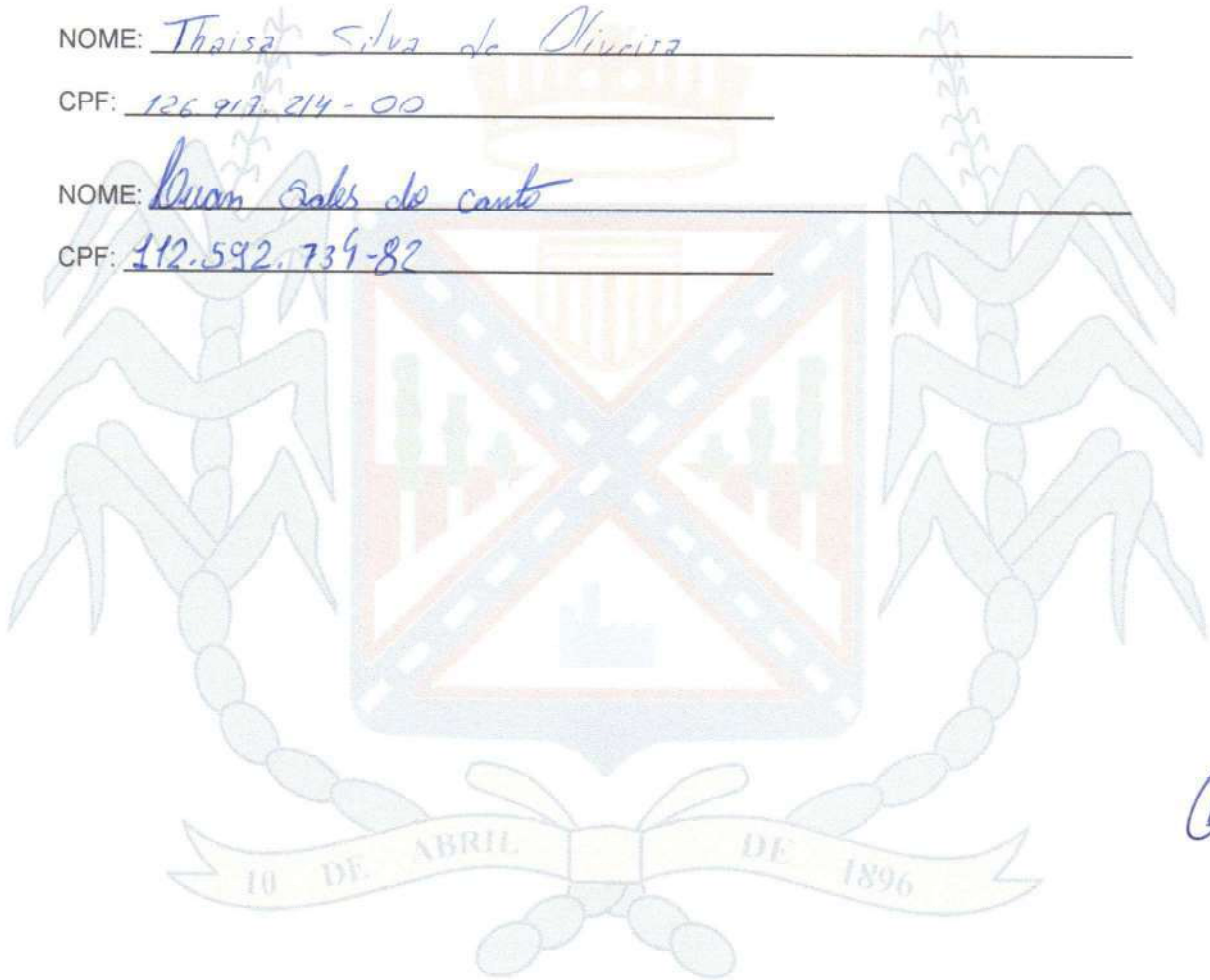 NOME: Thaisa Silva de Oliveira
CPF: 126.917.214-00
NOME: Luan Sales do canto
CPF: 112.592.734-82
10 DE ABRIL DE 1896